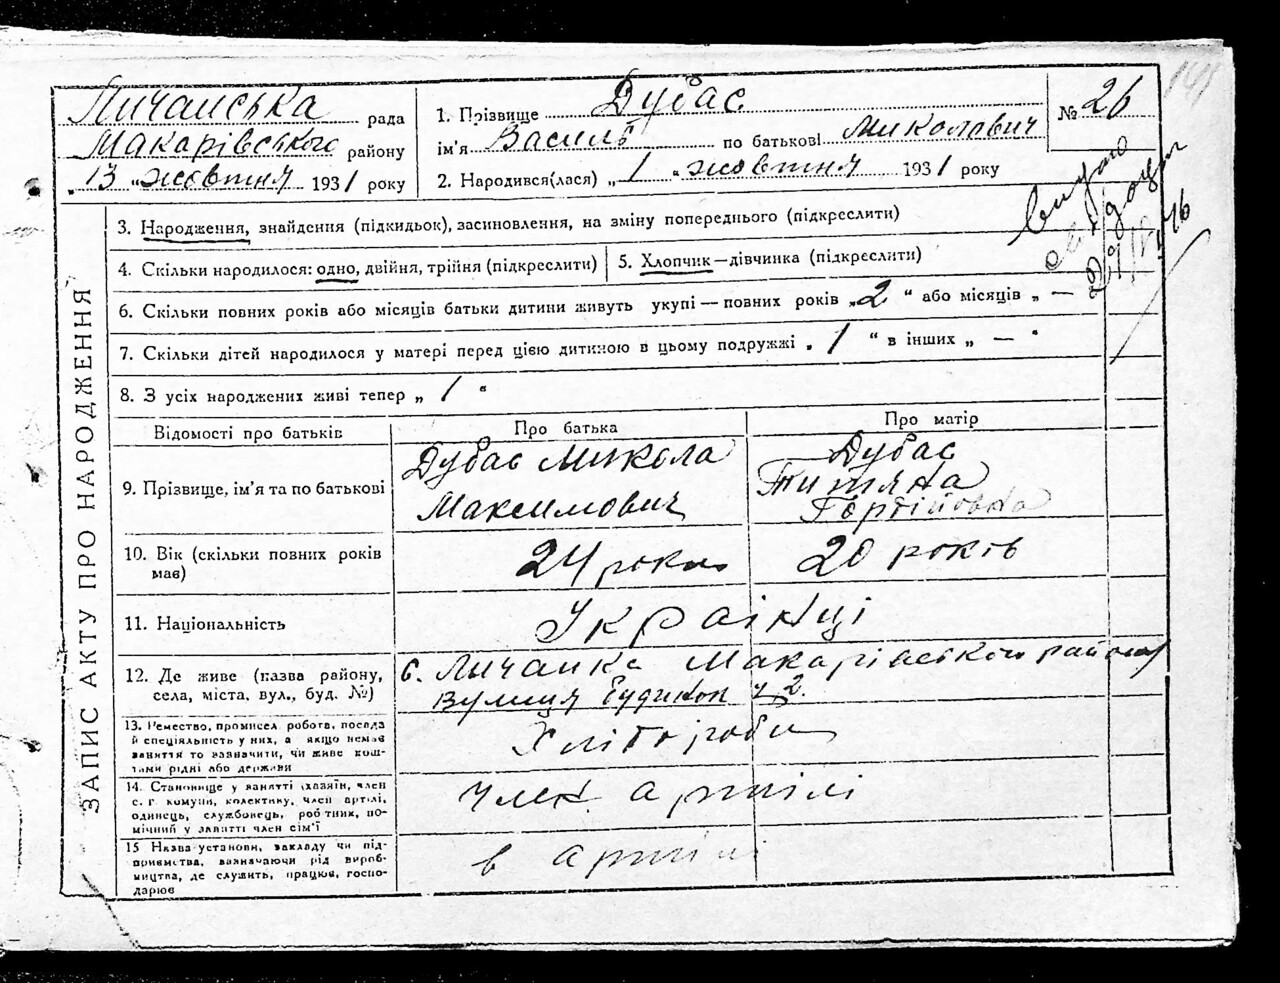 Личанська рада
Макарівського району
„13“ жовтня 1931 року
1. Прізвище Дубас
ім'я Василь по батькові Миколович
2. Народився(лася) „1“ жовтня 1931 року
№ 26
ЗАПИС АКТУ ПРО НАРОДЖЕННЯ
3. Народження, знайдення (підкидьок), засиновлення, на зміну попереднього (підкреслити)
4. Скільки народилося: одно, двійня, трійня (підкреслити) 5. Хлопчик—дівчинка (підкреслити)
6. Скільки повних років або місяців батьки дитини живуть укупі — повних років „2“ або місяців „ —
7. Скільки дітей народилося у матері перед цією дитиною в цьому подружжі „1“ в інших „ — “
8. З усіх народжених живі тепер „1“
Відомості про батьків Про батька Про матір
9. Прізвище, ім'я та по батькові
Дубас Микола
Максимович
Дубас
Титяна
10. Вік (скільки повних років має) 24 роки 20 років
11. Національність Українці
12. Де живе (назва району, села, міста, вул., буд. №)
с. Личанка Макарівського району
вулиця будинок № 2
13. Ремество, промисел, робота, посада
й спеціяльність у них, а якщо немає
заняття то зазначити, чи живе кош-
тами рідні або держави
Хлібороби
14. Становище у занятті (хазяїн, член
с. г. комуни, колективу, член артілі,
одинець, службовець, робітник, по-
мічний у занятті член сім'ї
член артілі
15 Назва установи, закладу чи під-
приємства, зазначаючи рід вироб-
ництва, де служить, працює, госпо-
дарює
в артілі